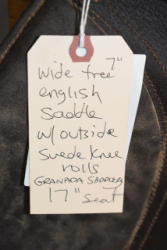 7"
wide tree
english
Saddle
w/outside
Suede knee
rolls
GRANADA SADDLE
17" seat